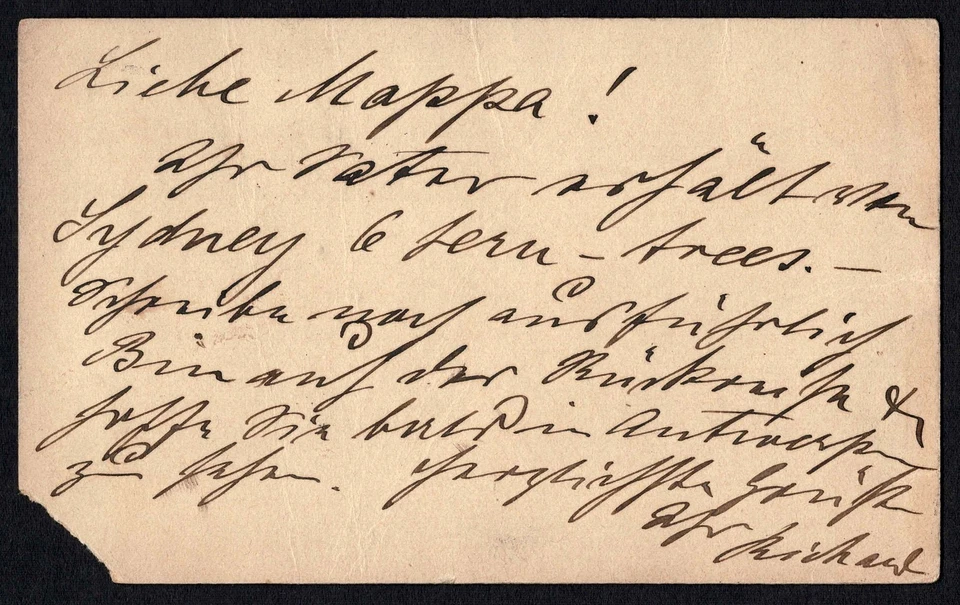 Liebe Mappa!
Ihr Vater erhält von
Sydney 6 fern-trees.—
Schreibe noch ausführlich
Bin auf der Rückreise &
hoffe Sie bald in Antwerpen
zu sehen. Herzlichste Grüße
Ihr Richard